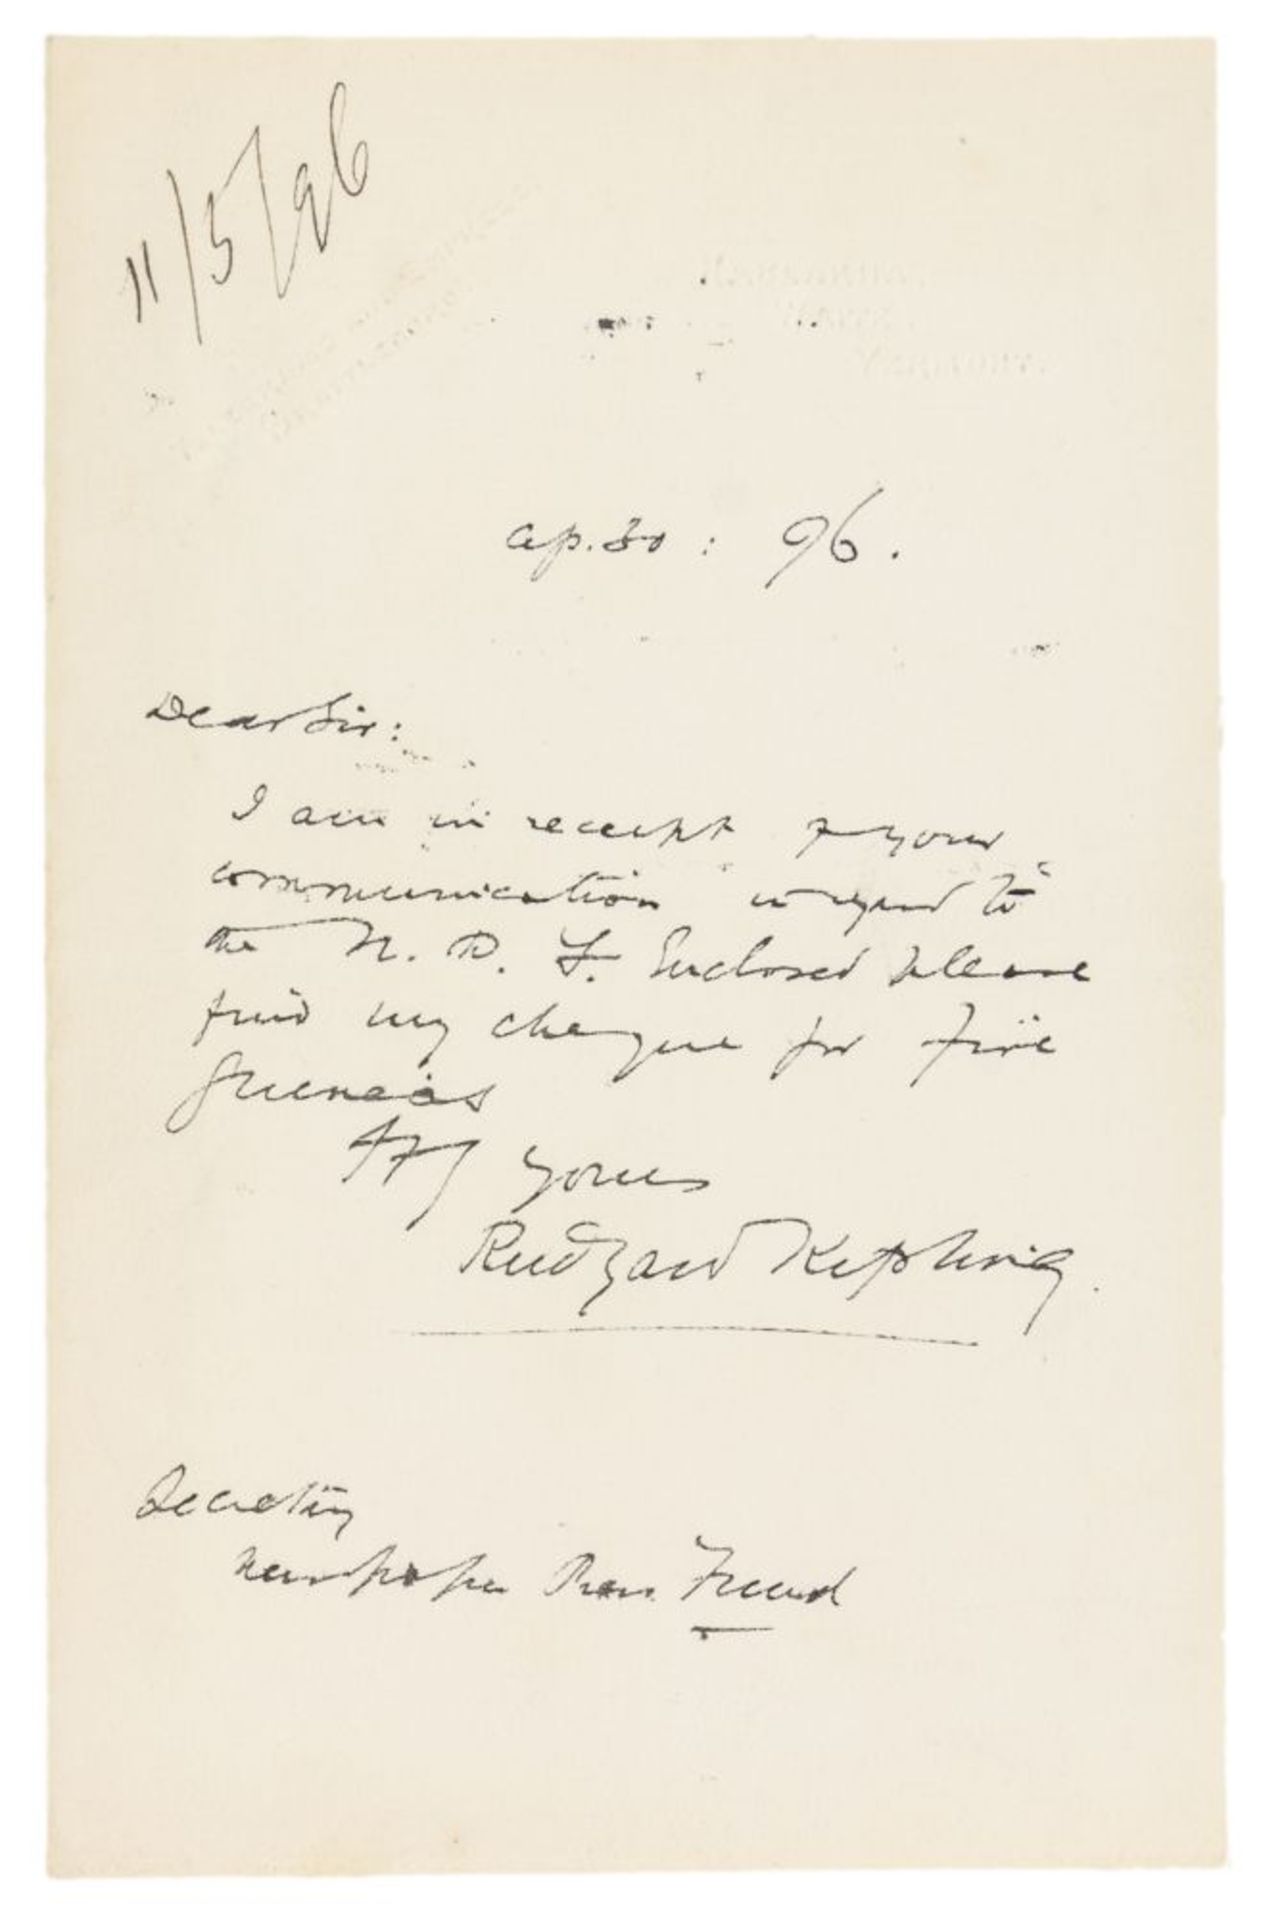 11/5/96
Ap. 30 : 96.
Dear Sir:
I am in receipt of your
communication in regard to
the N. P. F. Enclosed please
find my cheque for five
guineas
yours
Rudyard Kipling.
Secretary
Newspaper Press Fund